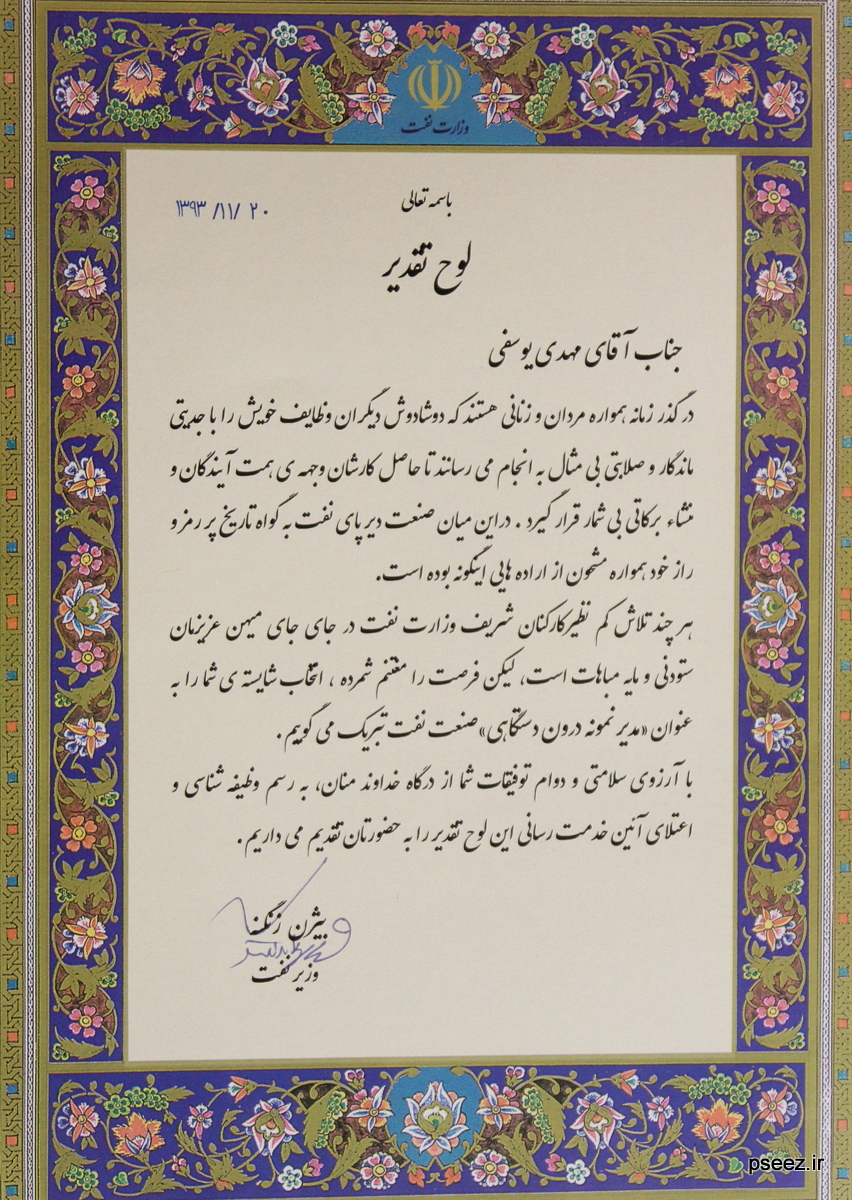 وزارت نفت
باسمه تعالی
۱۳۹۳/۱۱/۲۰
لوح تقدیر
جناب آقای مهدی یوسفی
در گذر زمانه همواره مردان و زنانی هستند که دوشادوش دیگران وظایف خویش را با جدیتی
ماندگار و صلابتی بی مثال به انجام می رسانند تا حاصل کارشان وجهه ی همت آیندگان و
منشاء برکاتی بی شمار قرار گیرد . دراین میان صنعت دیر پای نفت به گواه تاریخ پر رمز و
راز خود همواره مشحون از اراده هایی اینگونه بوده است.
هر چند تلاش کم نظیرکارکنان شریف وزارت نفت در جای جای میهن عزیزمان
ستودنی و مایه مباهات است، لیکن فرصت را مغتنم شمرده ، انتخاب شایسته ی شما را به
عنوان «مدیر نمونه درون دستگاهی» صنعت نفت تبریک می گوییم .
با آرزوی سلامتی و دوام توفیقات شما از درگاه خداوند منان، به رسم وظیفه شناسی و
اعتلای آئین خدمت رسانی این لوح تقدیر را به حضورتان تقدیم می داریم .
بیژن زنگنه
وزیر نفت
pseez.ir